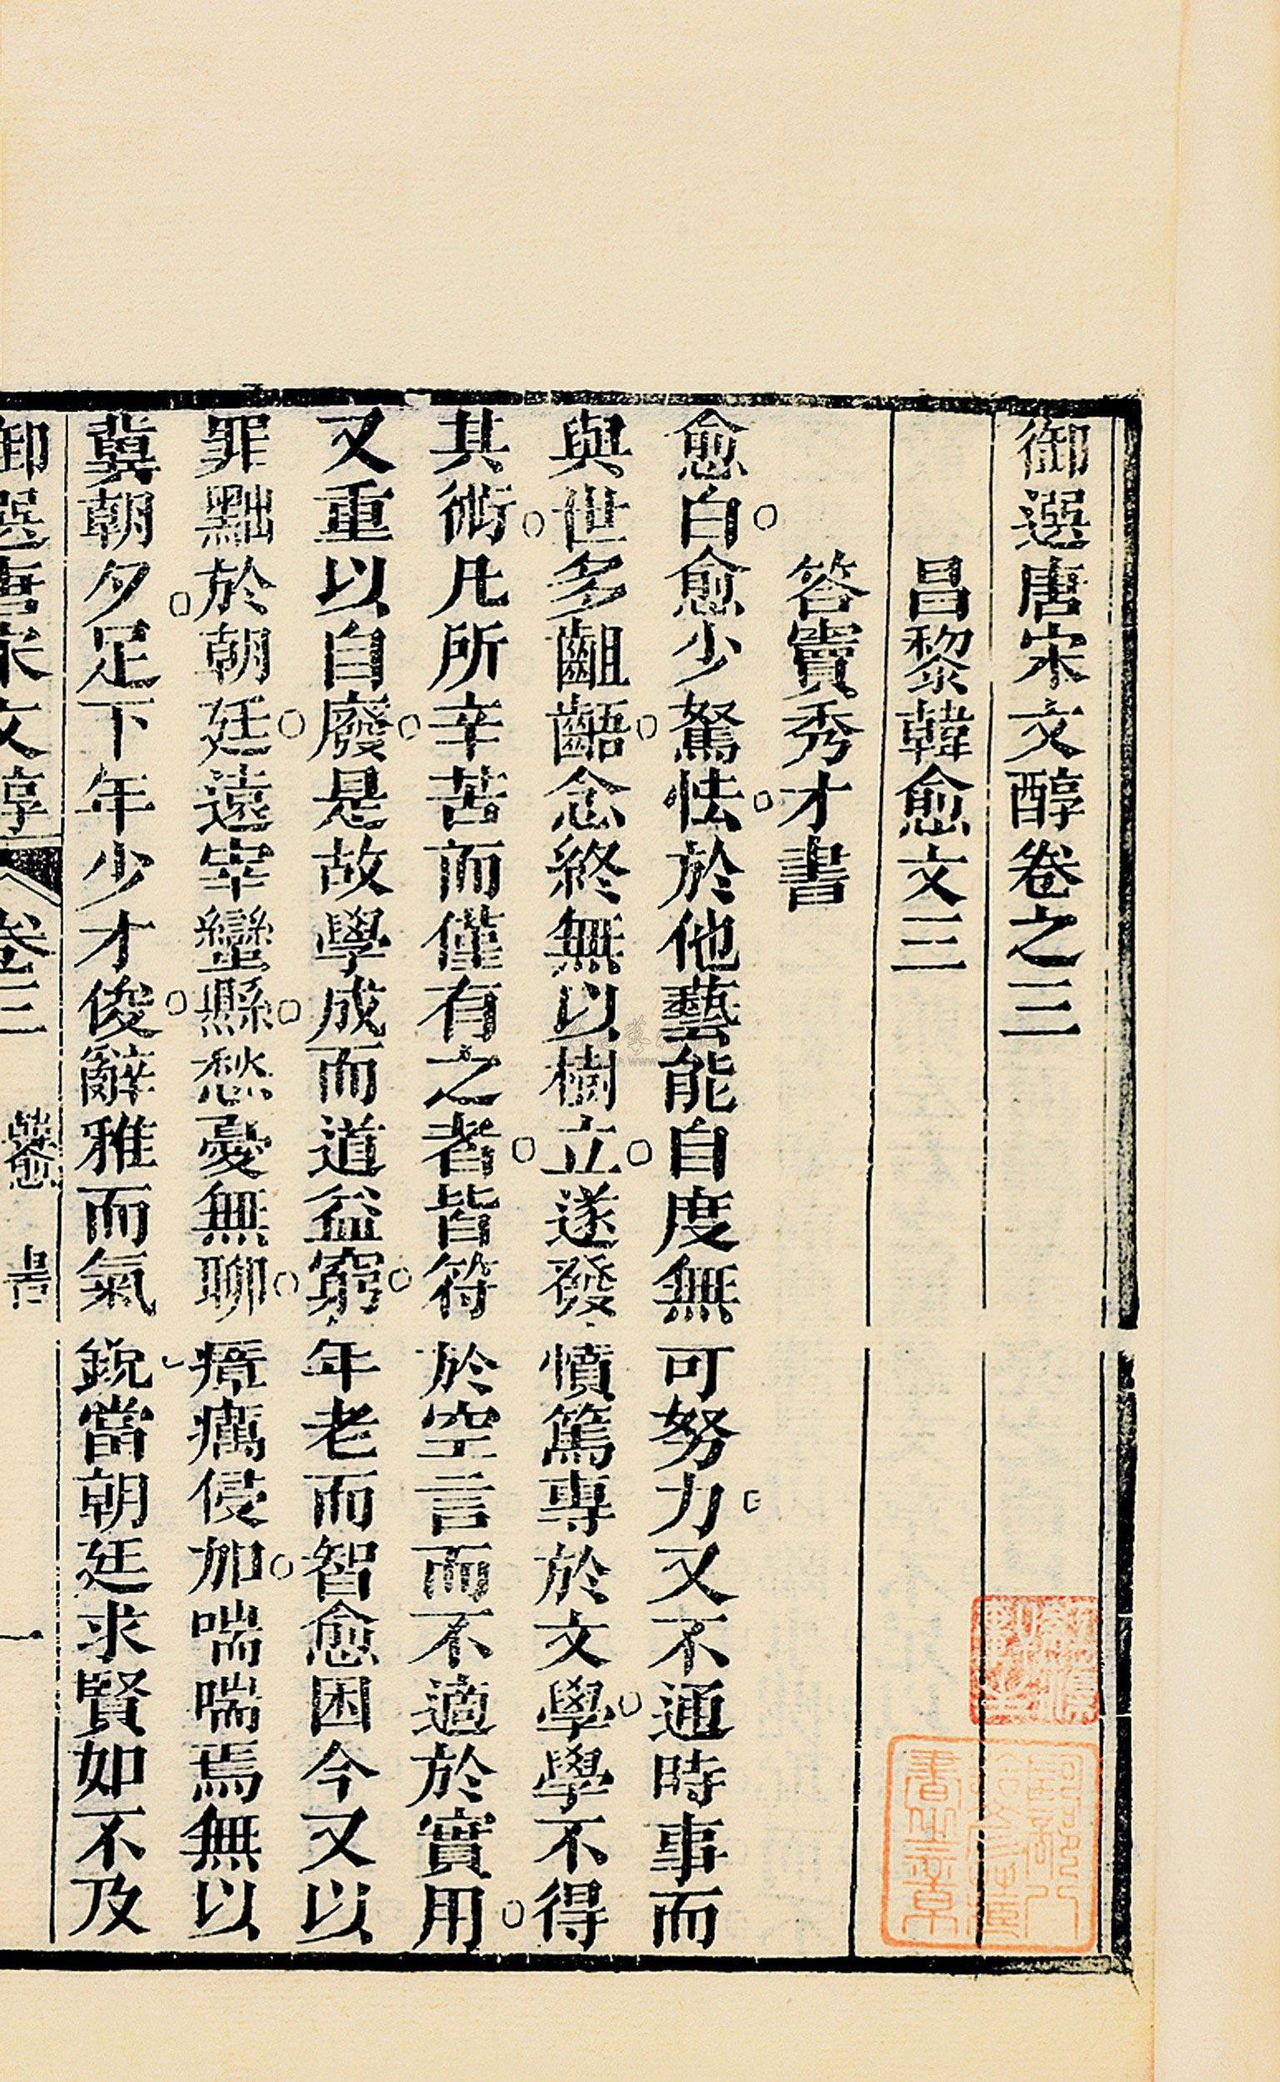 御選唐宋文醇卷之三
昌黎韓愈文三
答竇秀才書
愈白愈少駑怯於他藝能自度無可努力又不通時事而
與世多齟齬念終無以樹立遂發憤篤專於文學學不得
其術凡所辛苦而僅有之者皆符於空言而不適於實用
又重以自廢是故學成而道益窮年老而智愈困今又以
罪黜於朝廷遠宰蠻縣愁憂無聊瘴癘侵加喘喘焉無以
冀朝夕足下年少才俊辭雅而氣銳當朝廷求賢如不及
御選唐宋文醇 卷三 韓愈 書 一